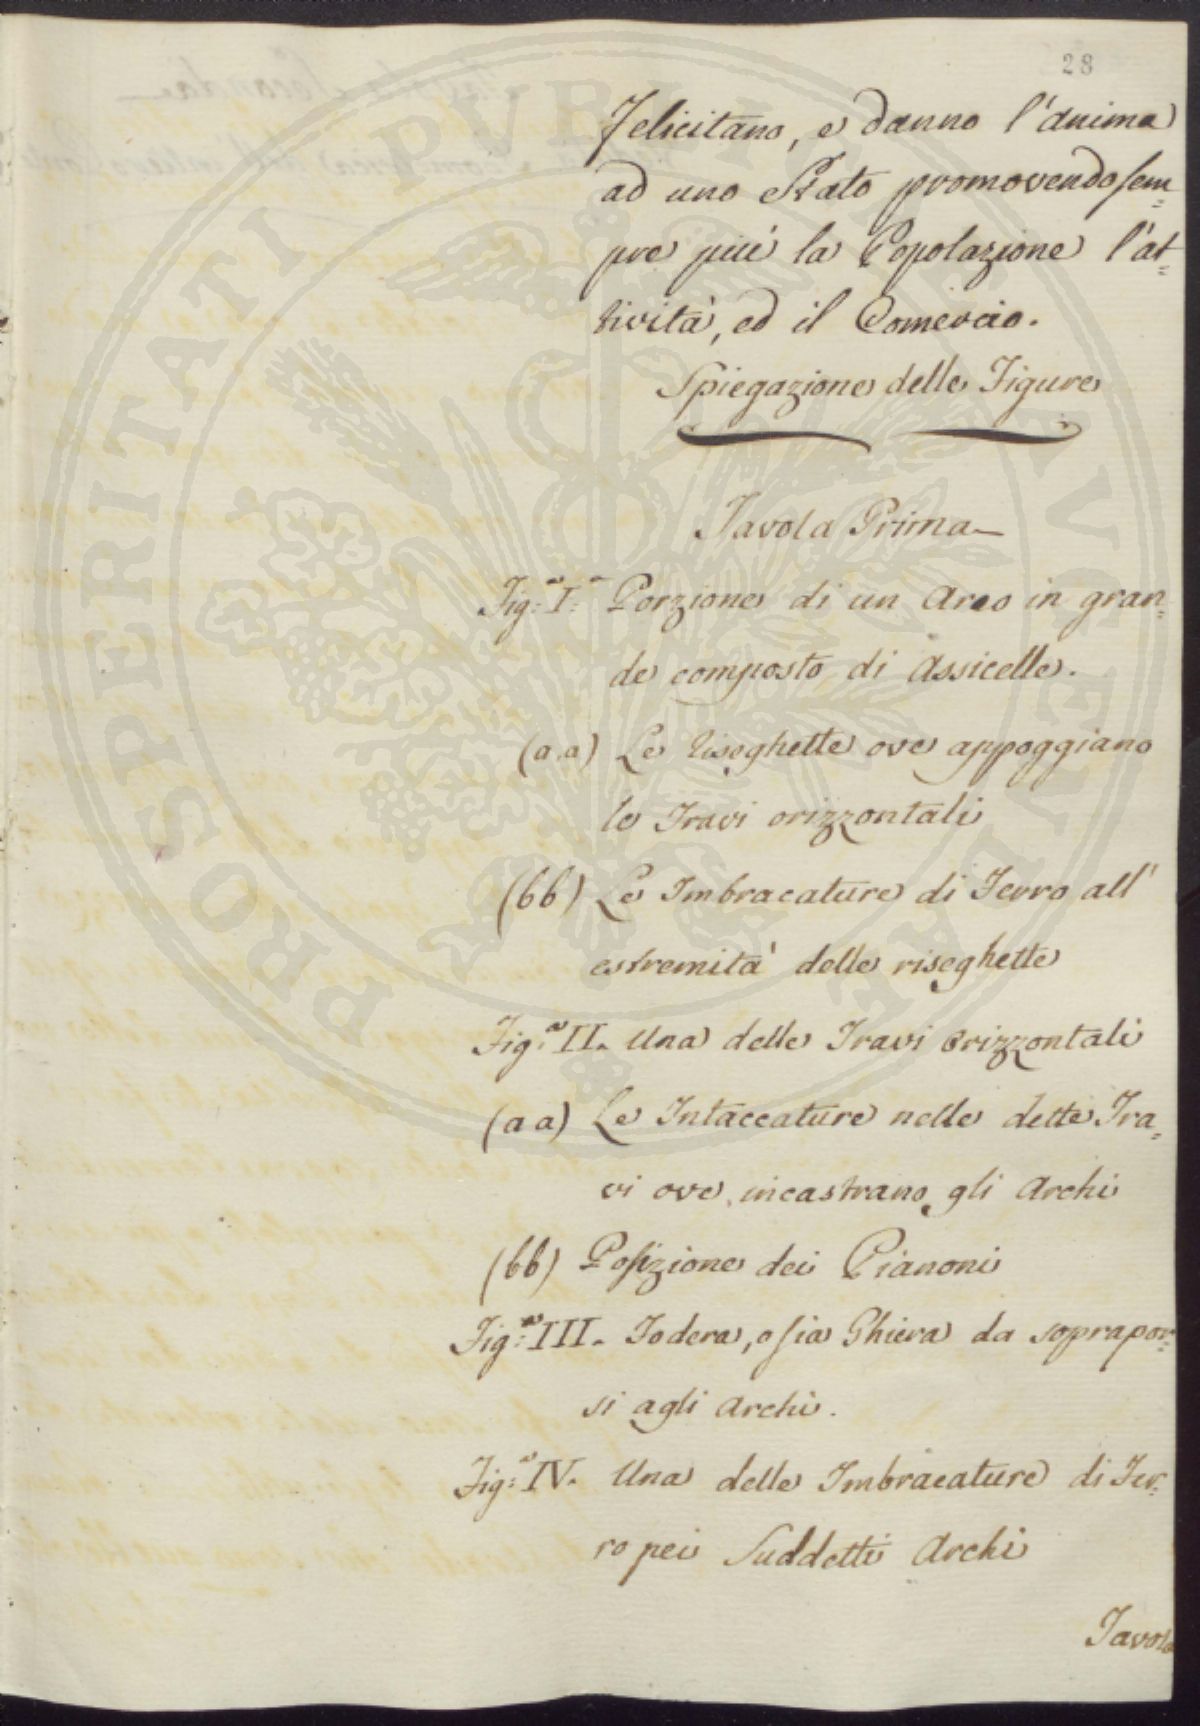 28
Felicitano, e danno l'anima
ad uno Stato promovendo sem=
pre più la Popolazione l'at=
tività, ed il Comercio.
Spiegazione delle Figure
Tavola Prima
Fig:ª I:ª Porzione di un Arco in gran=
de composto di Assicelle.
(a.a) Le Riseghette ove appoggiano
le Travi orizzontali
(bb) Le Imbracature di Ferro all'
estremità delle riseghette
Fig:ª II. Una delle Travi Orizzontali
(aa) Le Intaccature nelle dette Tra=
vi ove incastrano gli Archi
(bb) Posizione dei Pianoni
Fig:ª III. Fodera, o sia Ghiera da soprapor=
si agli Archi.
Fig:ª IV. Una delle Imbracature di Fer=
ro pei Suddetti Archi
Tavola
PROSPERITATI PUBLICAE AUGENDAE